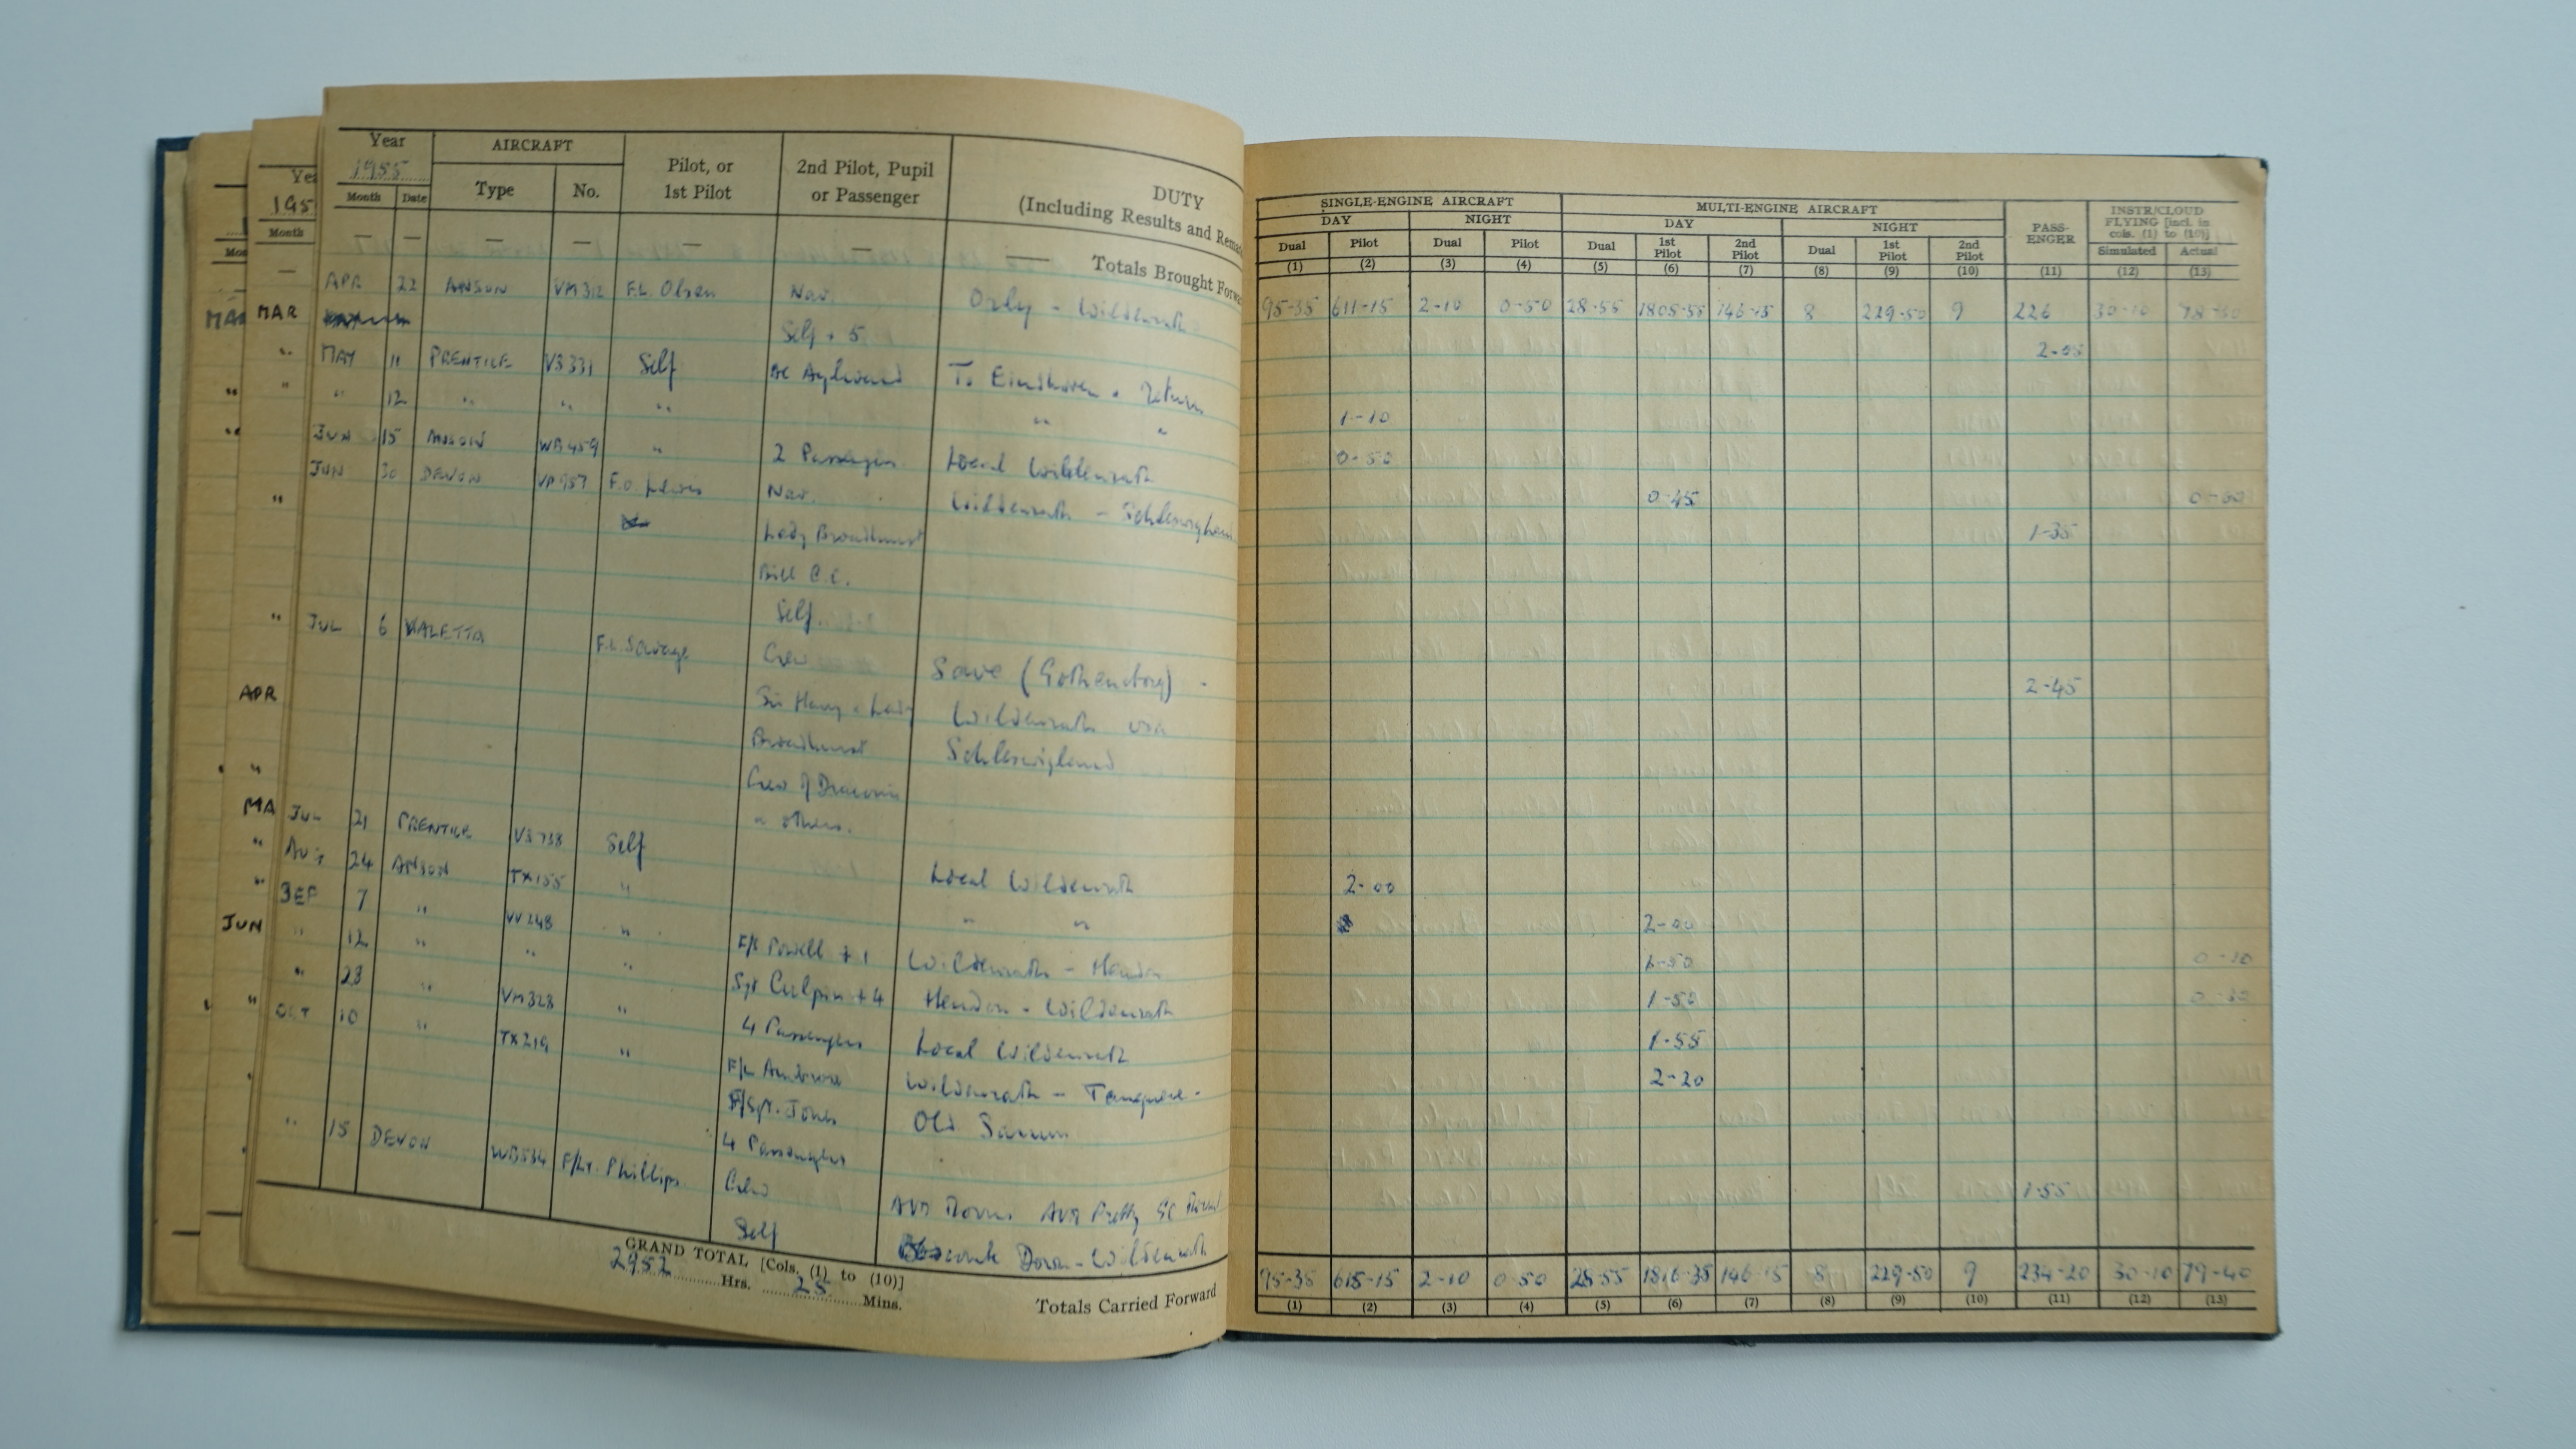 Year AIRCRAFT Pilot, or 1st Pilot 2nd Pilot, Pupil or Passenger DUTY
1955
Month Date Type No. (Including Results and Rema
— — — — — — — Totals Brought Forwa
APR 22 ANSON VM312 F.L. Olsen Nav. Orly - Wildenrath
Self + 5
MAY 11 PRENTICE VS331 Self AC Aylward To Eindhoven & Return
" 12 " " " " "
JUN 15 ANSON WB459 " 2 Passengers Local Wildenrath
JUN 30 DEVON VP957 F.O. Lewis Nav. Wildenrath - Schleswigland
Lady Broadhurst
Bill C.C.
Self
JUL 6 VALETTA F.L. Savage Crew Save (Gothenborg) -
Sir Harry & Lady Wildenrath via
Broadhurst Schleswigland
Crew of Dracaena
& others.
JUL 21 PRENTICE VS738 Self Local Wildenrath
AUG 24 ANSON TX155 " " "
SEP 7 " VV248 " F/S Powell + 1 Wildenrath - Hendon
" 12 " " " Sgt Culpin + 4 Hendon - Wildenrath
" 23 " VM328 " 4 Passengers Local Wildenrath
OCT 10 " TX219 " F/L Wildenrath -
F/Sgt. Jones Old Sarum
4 Passengers
" 15 DEVON WB534 F/Lt. Phillips Crew AVM AVM Pretty GC
Self Down - Wildenrath
GRAND TOTAL [Cols. (1) to (10)]
2952 Hrs. 25 Mins.
Totals Carried Forward
Yea
195
Month
MAR
"
"
"
"
APR
"
MA
"
"
JUN
"
"
Mon
MAR
SINGLE-ENGINE AIRCRAFT MULTI-ENGINE AIRCRAFT PASS-ENGER INSTR/CLOUD FLYING [incl. in cols. (1) to (10)]
DAY NIGHT DAY NIGHT
Dual Pilot Dual Pilot Dual 1st Pilot 2nd Pilot Dual 1st Pilot 2nd Pilot Simulated Actual
(1) (2) (3) (4) (5) (6) (7) (8) (9) (10) (11) (12) (13)
95-35 611-15 2-10 0-50 28-55 1805-55 146-15 8 229-50 9 226 30-10 78-30
2-05
1-10
0-50
0-45
1-35
2-45
2-00
2-00
1-50 0-10
1-50
1-55
2-20
1-55
95-35 615-15 2-10 0-50 28-55 1816-35 146-15 8 229-50 9 234-20 30-10 79-40
(1) (2) (3) (4) (5) (6) (7) (8) (9) (10) (11) (12) (13)